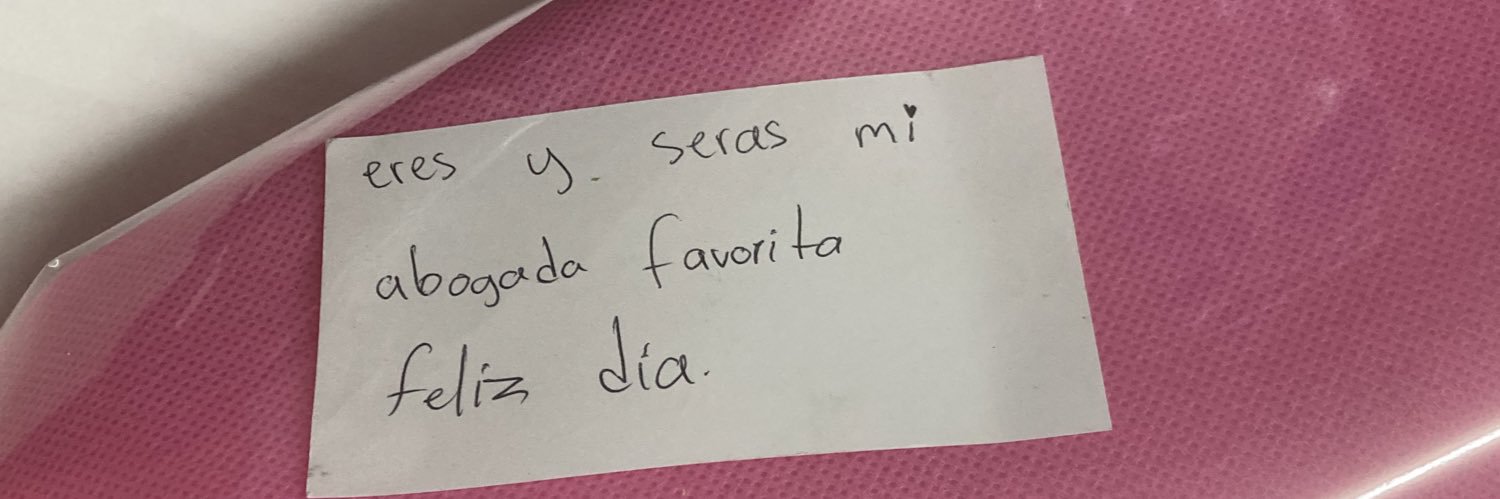 eres y. seras mi
abogada favorita
feliz día.